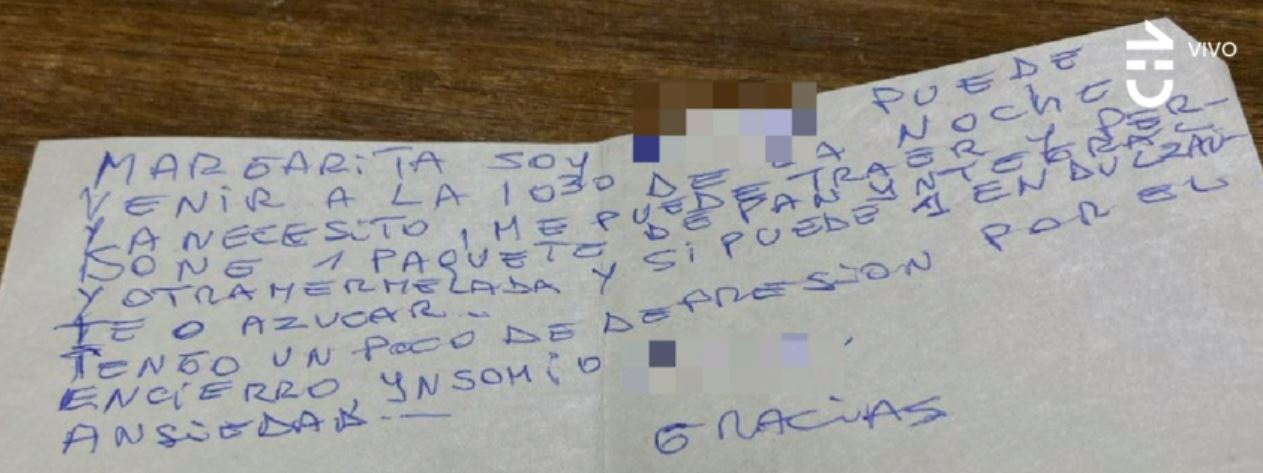 CHV VIVO
MARGARITA SOY PUEDE
VENIR A LA 1030 DE LA NOCHE
LA NECESITO, ME PUEDE TRAER Y PER-
DONE 1 PAQUETE DE PAN YNTEGRAL
Y OTRA MERMELADA Y SI PUEDE 1 ENDULZAN-
TE O AZUCAR..
TENGO UN POCO DE DEPRESION POR EL
ENCIERRO, YNSOMIO
ANSIEDAD
GRACIAS